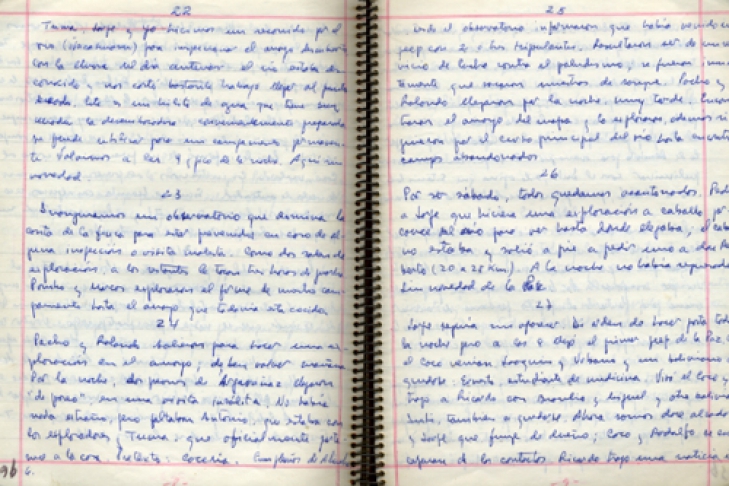 22
Tuma, Jorge y yo hicimos un recorrido por el
rio (Ñacahuasu) para inspeccionar el arroyo descubierto
con la lluvia del día anterior el rio estaba des-
conocido y nos costó bastante trabajo llegar al punto
deseado. Este es un hilito de agua que tiene
cerrada la desembocadura convenientemente preparado
se puede utilizar para un campamento
Volvimos a las 9 pasadas de la noche. Aqui sin
novedad.
23
Inauguramos un observatorio que domina la
casita de la finca para estar prevenidos en caso de al-
guna inspección o visita molesta. Como dos salen de
exploración, a los restantes le tocan tres horas de posta
Pombo y Marcos exploraron el firme de nuestro cam-
pamento hasta el arroyo que todavia esta crecido
24
Pacho y Rolando salieron para hacer una ex-
ploración en el arroyo; deben volver mañana
Por la noche, dos peones de Argarañaz llegaron
"de paseo", en una visita insólita. No habia
nada extraño, pero faltaban Antonio, que estaba con
los exploradores y Tuma, que oficialmente perte-
nece a la casa. Pretexto: caceria. Cumpleaños de Aliucha
96
25
Desde el observatorio informaron que habia venido un
jeep con 2 o tres tripulantes. Resultaron ser de un ser-
vicio de lucha contra el paludismo, se fueron inme-
diatamente que sacaron muestras de sangre. Pacho y
Rolando llegaron por la noche, muy tarde. Encon-
traron el arroyo del mapa y lo exploraron, ademas si-
guieron por el curso principal del rio hasta encontrar
campos abandonados.
26
Por ser sábado, todos quedamos acantonados. Pedí
a Jorge que hiciera una exploración a caballo por el
cauce del rio para ver hasta donde llegaba; el caba
no estaba y salió a pie a pedir uno a don Re
berto (20 a 25 km). A la noche no habia regresado
Sin novedad de la
27
Jorge seguia sin aparecer. Di orden de hacer posta toda
la noche pero a las 9 llegó el primer jeep de La Paz. C
el Coco venian Joaquin y Urbano y un boliviano
quedarse: Ernesto, estudiante de medicina. Viró el Coco y
trajo a Ricardo con Braulio y Miguel y otro
Inti, tambien a quedarse. Ahora somos doce alzados
y Jorge que funge de dueño; Coco y Rodolfo se en
cargaran de los contactos. Ricardo trajo una noticia